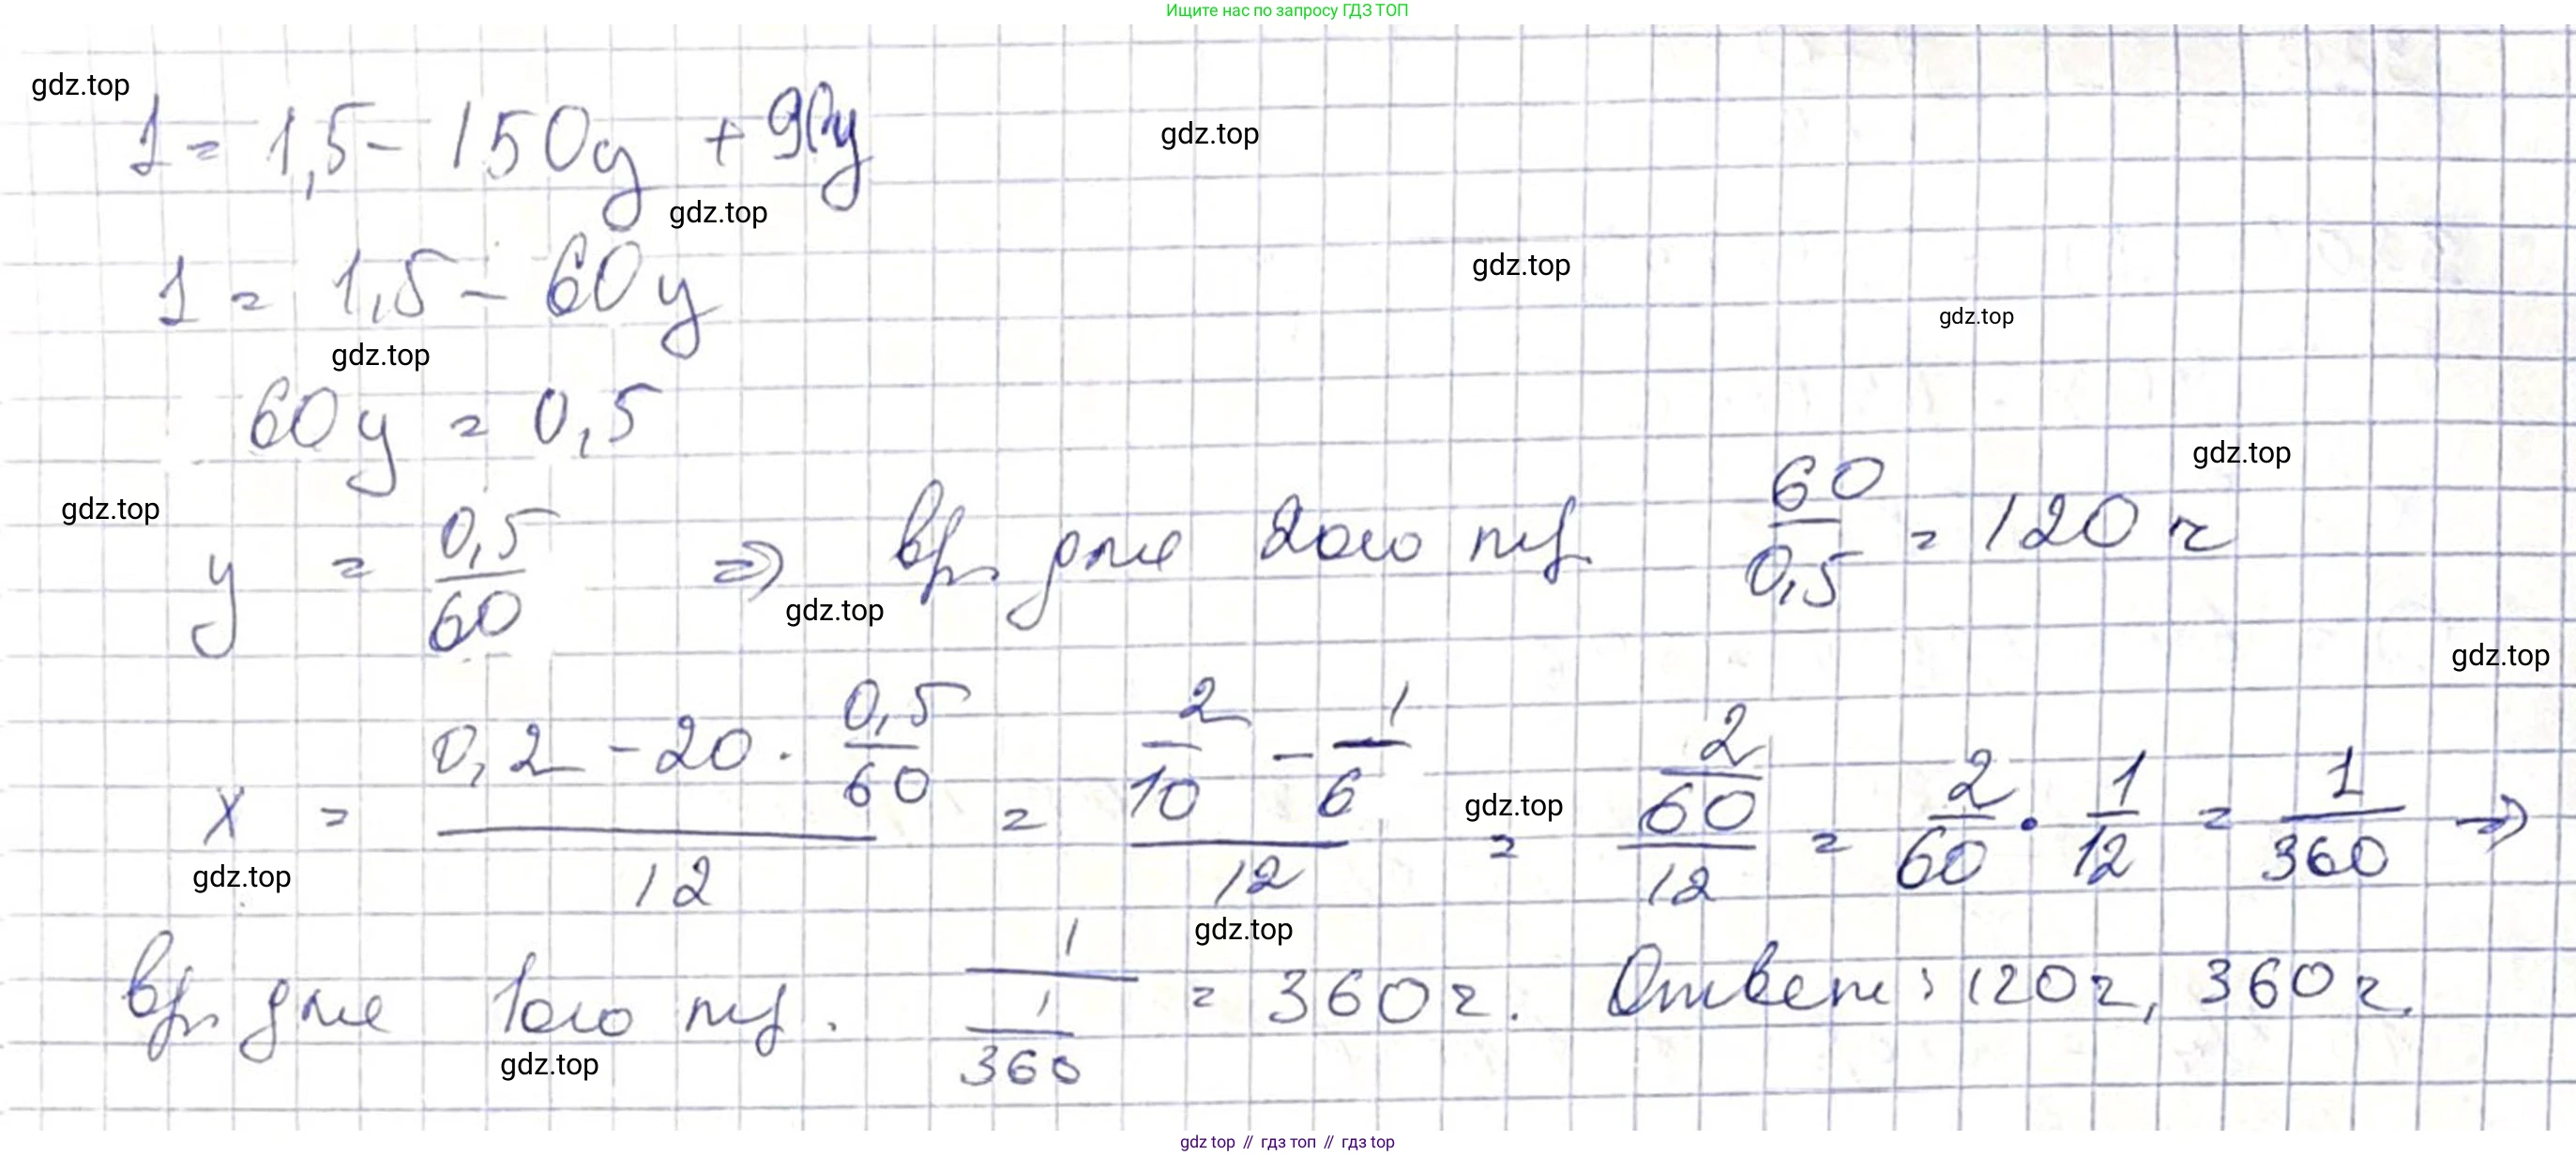 Ищите нас по запросу ГДЗ ТОП
gdz.top
1 = 1,5 - 150y + 90y
gdz.top
gdz.top
1 = 1,5 - 60y
gdz.top
gdz.top
gdz.top
60y = 0,5
gdz.top
gdz.top
y = 0,5/60 => вр. для 2ого тр. 60/0,5 = 120 ч
gdz.top
gdz.top
x = (0,2 - 20 · 0,5/60)/12 = (2/10 - 1/6)/12 = (2/60)/12 = 2/60 · 1/12 = 1/360 =>
gdz.top
gdz.top
gdz.top
вр. для 1ого тр. 1/(1/360) = 360 ч. Ответ: 120 ч, 360 ч.
gdz.top
gdz top // гдз топ // гдз top